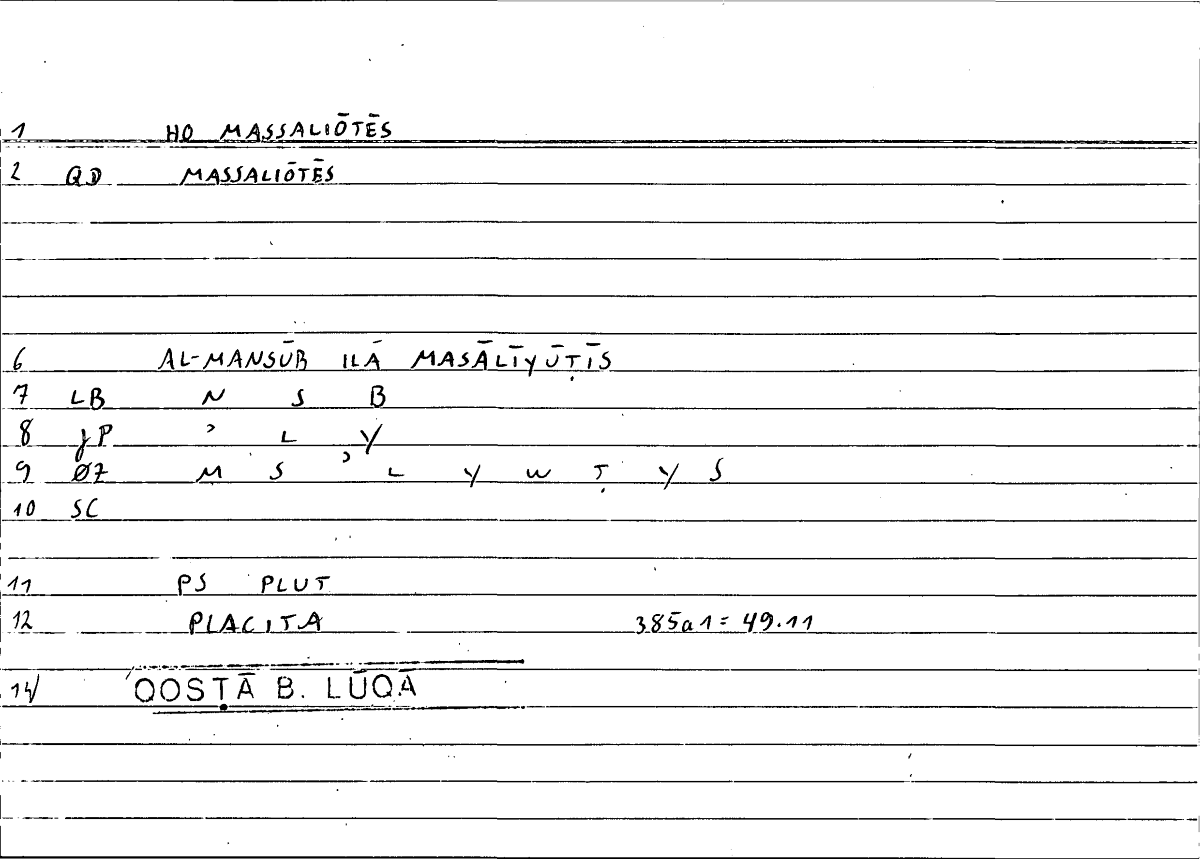 1 HO MASSALIŌTĒS
2 QD MASSALIŌTĒS
6 AL-MANSŪB ILĀ MASĀLĪYŪṬĪS
7 LB N S B
8 JP ʾ L Y
9 Ø7 M S ʾ L Y W Ṭ Y S
10 SC
11 PS PLUT
12 PLACITA 385a1 = 49.11
14 QOSṬĀ B. LŪQĀ